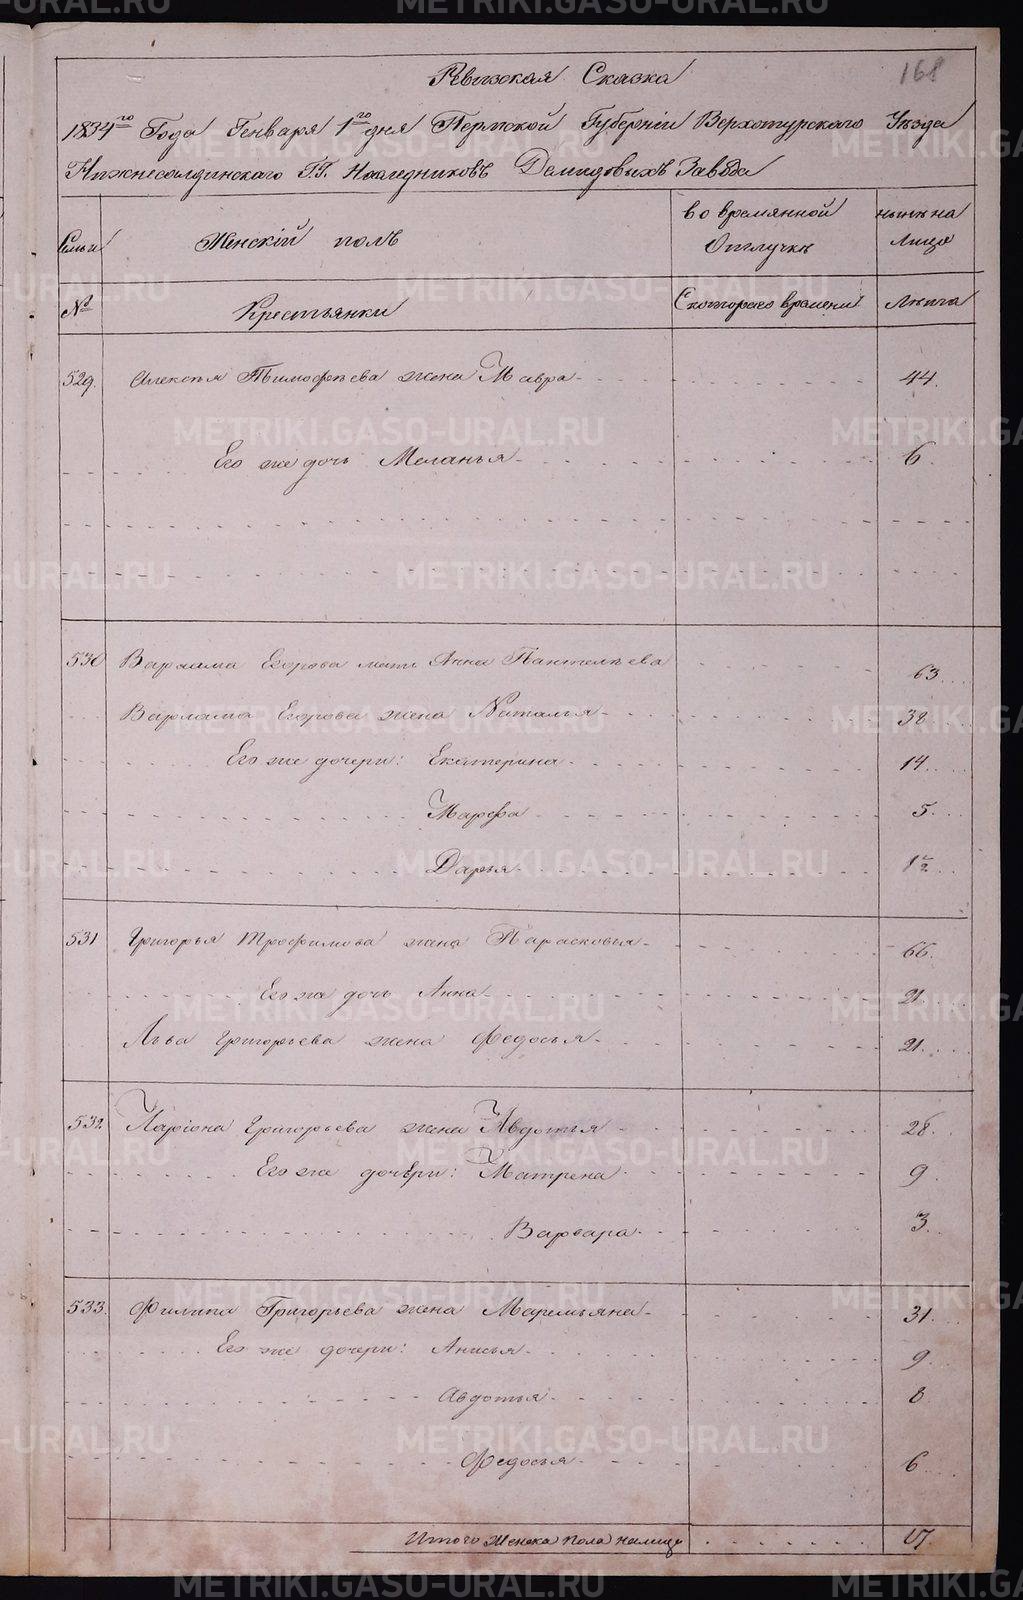 168
Ревизская Сказка
1834го Года Генваря 1го дня Пермской Губерніи Верхотурскаго Уезда
Нижнесалдинскаго Г.Г. Наследниковъ Демидовыхъ Завода
Семьи
Женскій полъ
во времянной
Отлучкѣ
ныне на
Лицо
№
Крестьянки
Скотораго времени
Лѣта
529. Алексея Тимофѣева жена Мавра 44.
Его же дочь Меланья 6.
530 Варлама Егорова мать Анна Пантелѣева 63
Варлама Егорова жена Наталья 38
Его же дочери: Екатерина 14
Марфа 5.
Дарья 1/2
531 Григорья Трофимова жена Парасковья 66.
Его же дочь Анна 21
Льва Григорьева жена Федосья 21.
532. Ларіона Григорьева жена Авдотья 28.
Его же дочѣри: Матрена 9
Варвара 3
533. Филипа Григорьева жена Маремьяна 31.
Его же дочери: Анисья 9
Авдотья 8
Федосья 6
Итого женска пола налицо 17.
METRIKI.GASO-URAL.RU